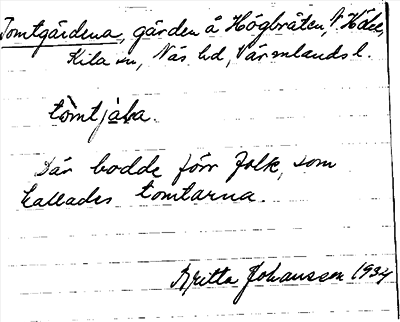 Tomtgårdena, gården å Högbråten,
Kila sn, Näs hd, Värmlands l.
tòmtjaba.
Där bodde förr folk, som
kallades tomtarna.
Britta Johansson 1934